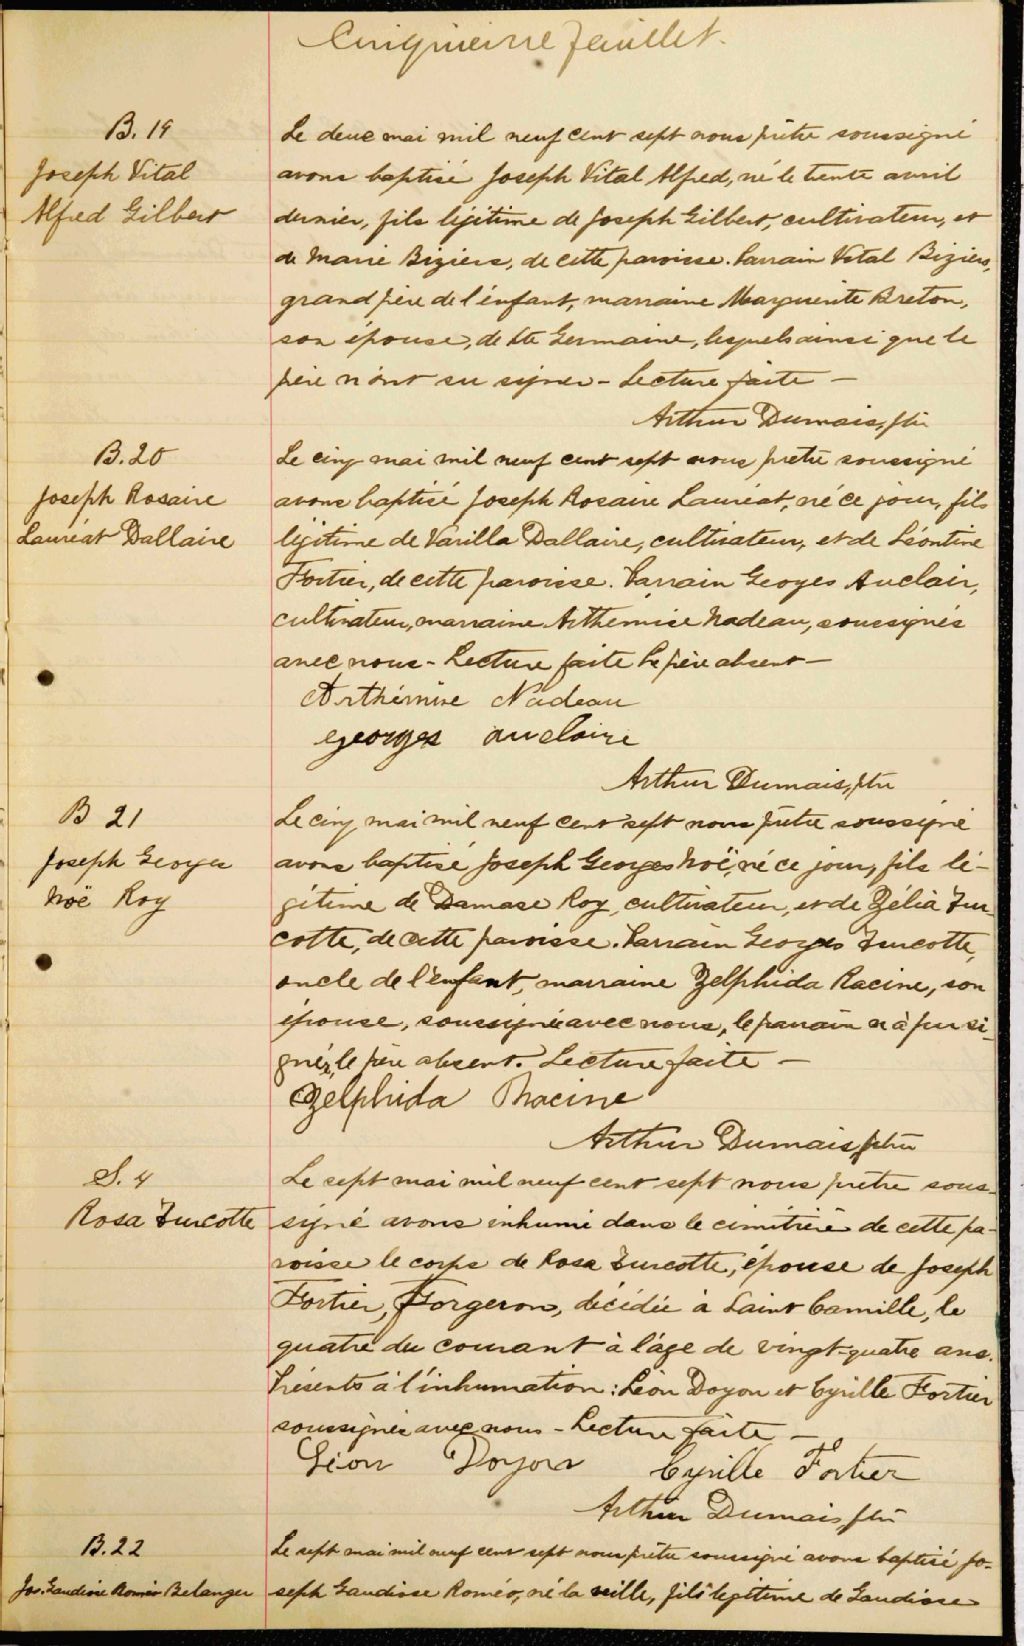 Cinquième feuillet.
B. 19
Joseph Vital
Alfred Gilbert
Le deux mai mil neuf cent sept nous prêtre soussigné
avons baptisé Joseph Vital Alfred, né le trente avril
dernier, fils légitime de Joseph Gilbert, cultivateur, et
de Marie Biziers, de cette paroisse. Parrain Vital Biziers,
grand père de l'enfant, marraine Marguerite Breton,
son épouse, de Ste Germaine, lesquels ainsi que le
père n'ont su signer - Lecture faite -
Arthur Dumais, ptre
B. 20
Joseph Rosaire
Lauréat Dallaire
Le cinq mai mil neuf cent sept nous prêtre soussigné
avons baptisé Joseph Rosaire Lauréat, né ce jour, fils
légitime de Varilla Dallaire, cultivateur, et de Léontine
Fortier, de cette paroisse. Parrain Georges Auclair,
cultivateur, marraine Arthémise Nadeau, soussignés
avec nous - Lecture faite le père absent -
Arthémise Nadeau
Georges Auclaire
Arthur Dumais, ptre
B 21
Joseph Georges
Noë Roy
Le cinq mai mil neuf cent sept nous prêtre soussigné
avons baptisé Joseph Georges Noë, né ce jour, fils lé-
gitime de Damase Roy, cultivateur, et de Zélia Tur-
cotte, de cette paroisse. Parrain Georges Turcotte,
oncle de l'enfant, marraine Zelphida Racine, son
épouse, soussignée avec nous, le parrain n'a pu si-
gner, le père absent. Lecture faite -
Zelphida Racine
Arthur Dumais, ptre
S. 4
Rosa Turcotte
Le sept mai mil neuf cent sept nous prêtre sous-
signé avons inhumé dans le cimitière de cette pa-
roisse le corps de Rosa Turcotte, épouse de Joseph
Fortier, Forgeron, décédée à Saint Camille, le
quatre du courant à l'âge de vingt-quatre ans.
Présents à l'inhumation : Léon Doyon et Cyrille Fortier
soussignés avec nous - Lecture faite -
Léon Doyon Cyrille Fortier
Arthur Dumais, ptre
B. 22
Jos. Gaudiose Roméo Belanger
Le sept mai mil neuf cent sept nous prêtre soussigné avons baptisé Jo-
seph Gaudiose Roméo, né la veille, fils légitime de Gaudiose